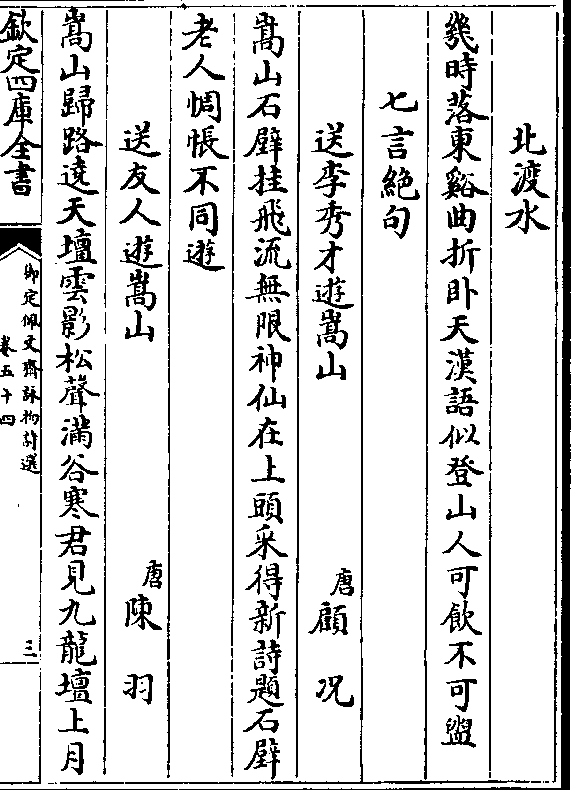 北渡水
幾時落東谿曲折卧天漢語似登山人可飲不可盥
七言絶句
送李秀才遊嵩山 唐 顧況
嵩山石壁挂飛流無限神仙在上頭采得新詩題石壁
老人惆悵不同遊
送友人遊嵩山 唐 陳羽
嵩山歸路遶天壇雲影松聲滿谷寒君見九龍壇上月
欽定四庫全書
御定佩文齋詠物詩選
卷五十四
三